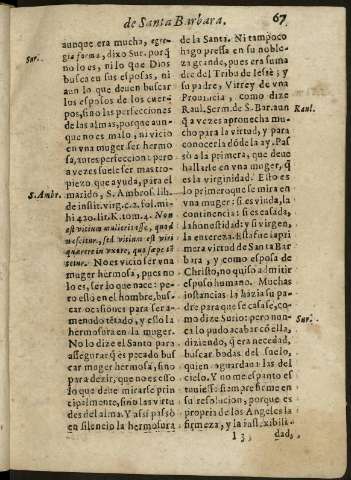 de Santa Barbara.
67
aunque era mucha, egre-
gia forma, dixo Sur. porq̃
no lo es, ni lo que Dios
busca en sus esposas, ni
aun lo que deuen buscar
los esposos de los cuer-
pos, sino las perfecciones
de las almas, porque aun-
que no es malo, ni vicio
en vna muger ser hermo
sa, antes perfeccion: pero
a vezes suele ser mas tro-
piezo que ayuda, para el
marido, S. Ambros. lib.
de instit. virg. c. 2. fol. mi-
hi 420. lit. K. tom. 4. Non
est vitium mulieri esse, quod
nascitur, sed vitium est viri
quærere in vxore, quo sæpe tē
tetur. No es vicio ser vna
muger hermosa, pues no
lo es, ser lo que nace: pe-
ro esto en el hombre, bus-
car ocasiones para ser a-
menudo tẽtado, y esso la
hermosura en la muger.
No lo dize el Santo para
assegurar q̃ es pecado bus
car muger hermosa, sino
para dezir, que no es esso
lo que deue mirarse prin
cipalmente, sino las virtu
des del alma. Y assi passò
en silencio la hermosura
Sur.
S. Ambr.
de la Santa. Ni tampoco
hago pressa en su noble-
za grande, pues era suma
dre del Tribu de Iesse; y
su padre, Virrey de vna
Prouincia, como dize
Raul. Serm. de S. Bar. aun
q̃ a vezes aprouecha mu-
cho para la virtud, y para
conocerla dõde la ay. Pas
sò a la primera, que deue
hallarse en vna muger, q̃
es la virginidad. Esto es
lo primero que se mira en
vna muger: si es viuda, la
continencia: si es casada,
la honestidad: y si virgen,
la entereza. Esta fue la pri
mera virtud de Santa Bar
bara, y como esposa de
Christo, no quiso admitir
esposo humano. Muchas
instancias la hazia su pa-
dre para que se casase, co-
mo dize Surio: pero nun-
ca lo pudo acabar cõ ella,
diziendo, q̃ era necedad,
buscar bodas del suelo,
quien aguardaua las del
cielo. Y no me espanto es
tuuiesse siempre firme en
su resolucion, porque es
propria de Angeles la
firmeza, y la inflexibili-
Raul.
Sur.
I 3
dad,